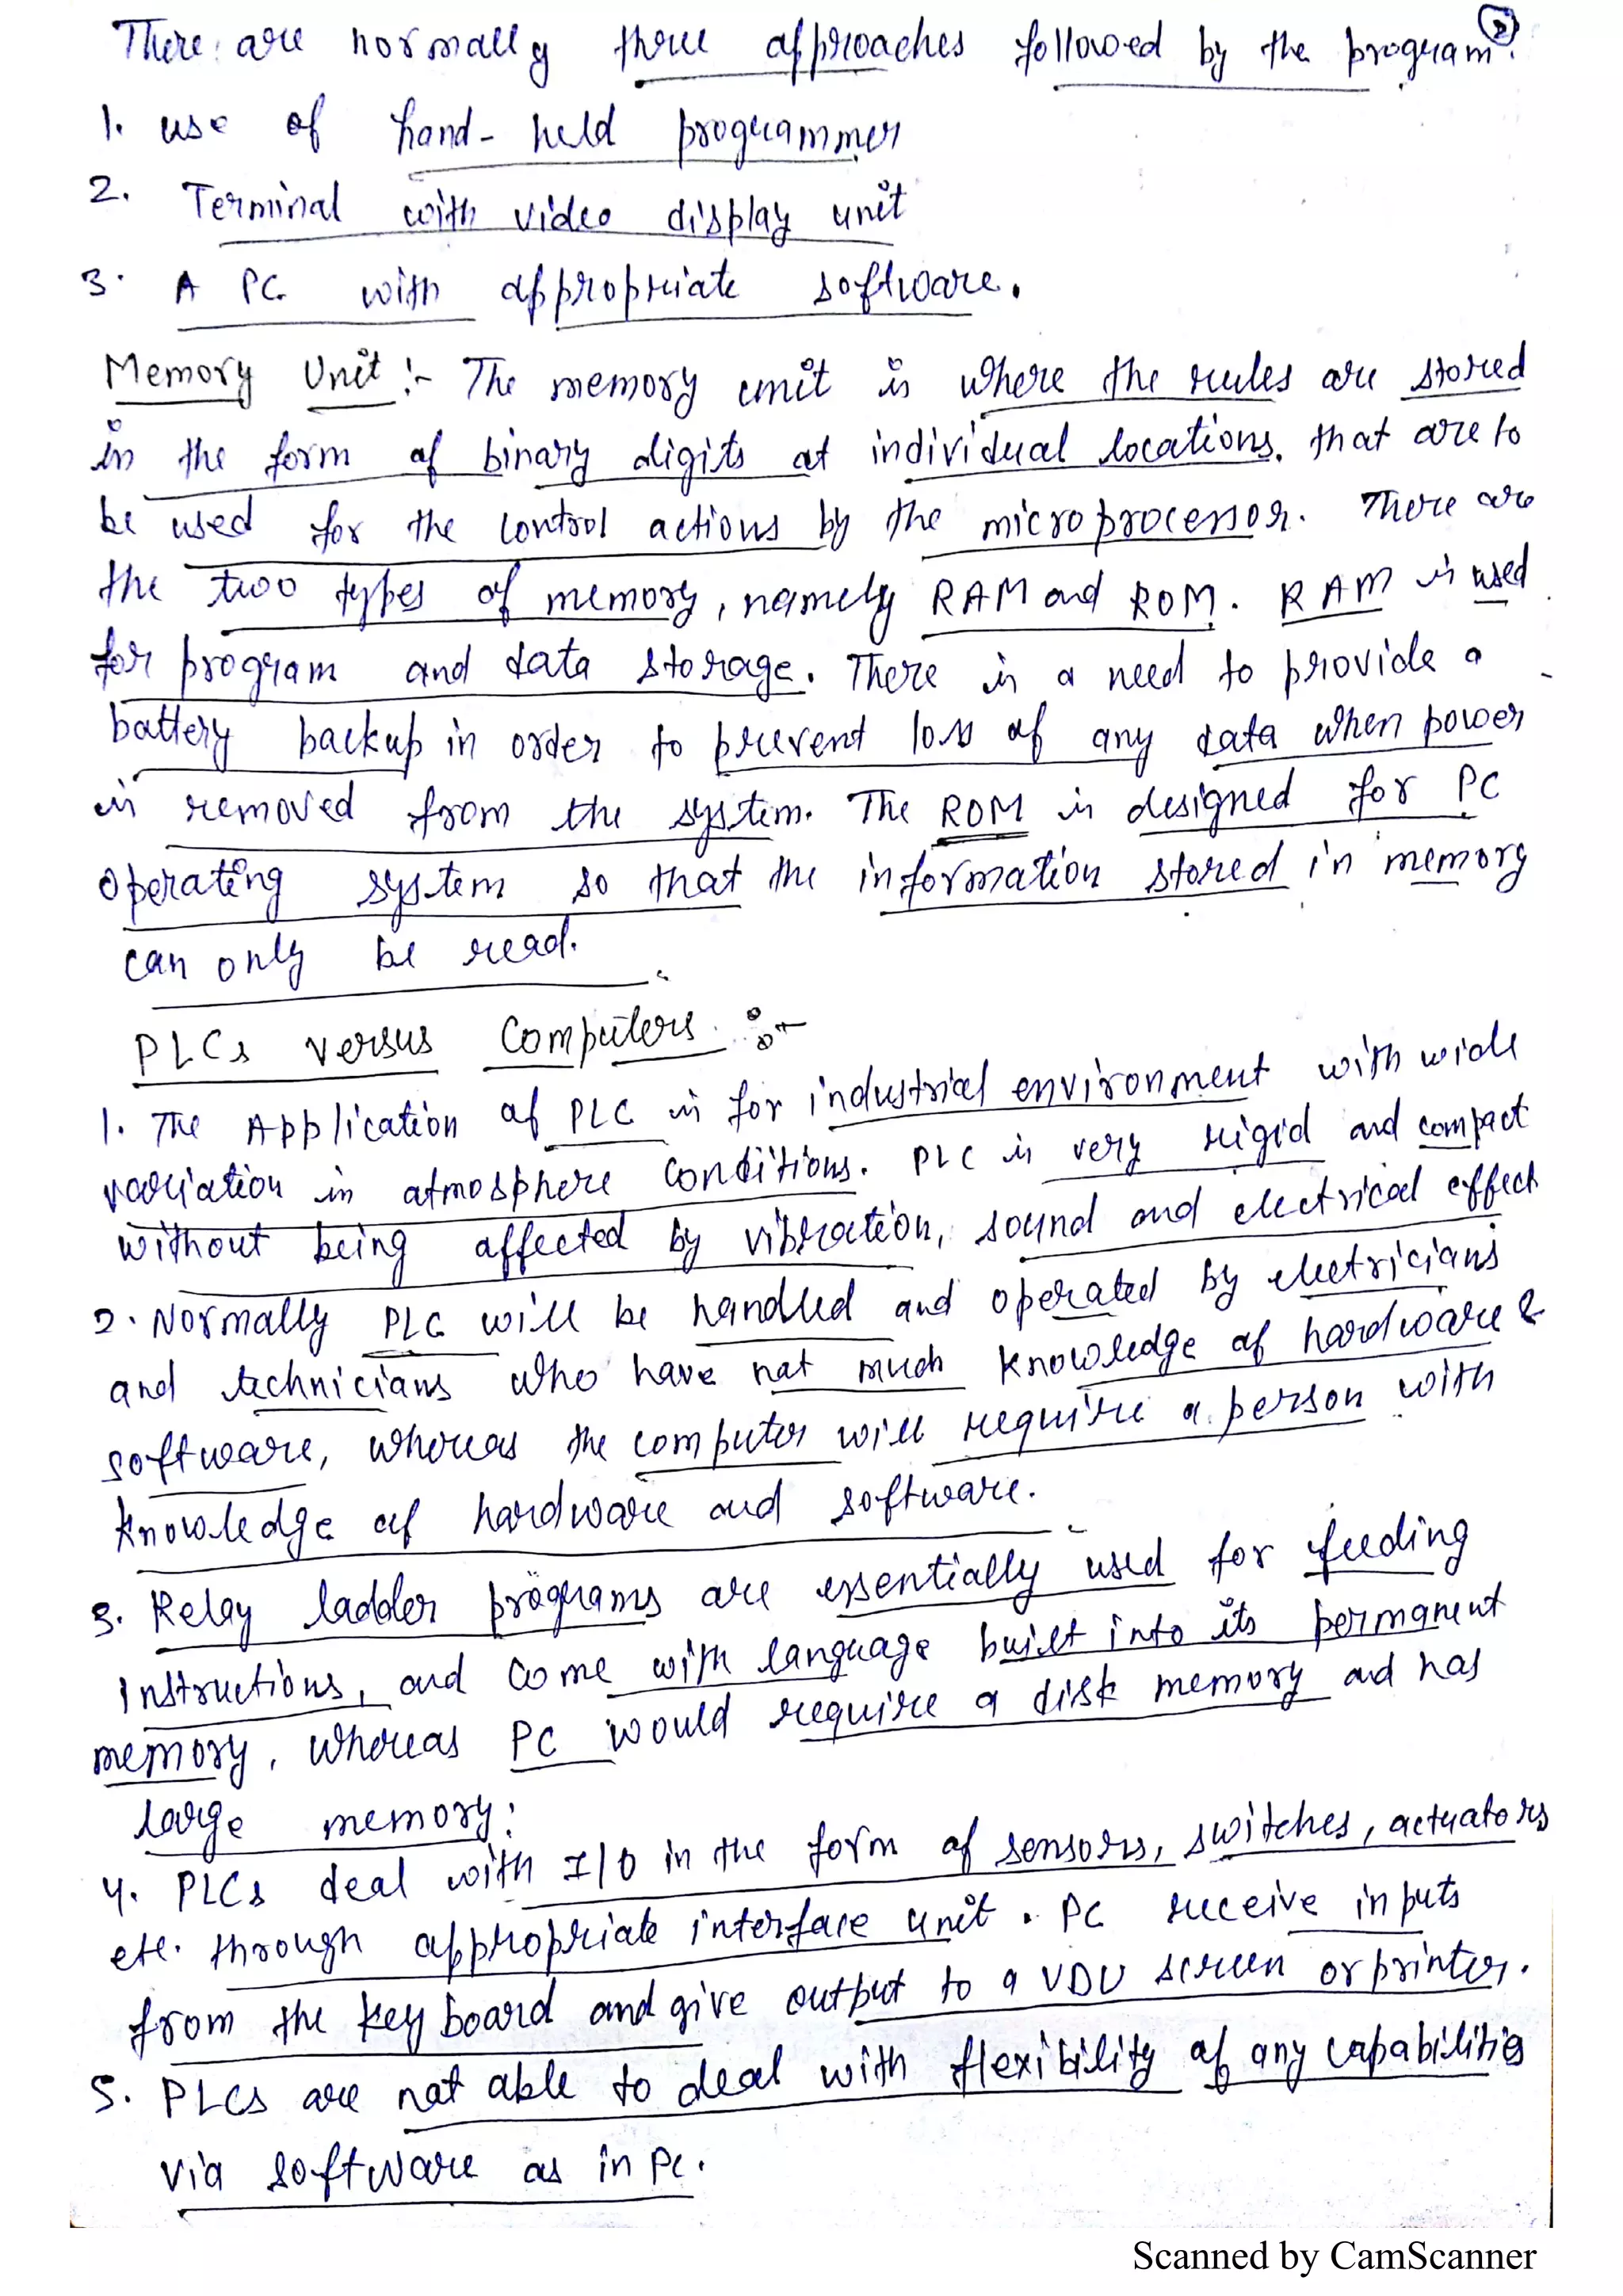 There are normally three approaches followed by the program.
1. use of hand-held programmer
2. Terminal with video display unit
3. A PC with appropriate software.
Memory Unit :- The memory unit is where the rules are stored
in the form of binary digits at individual locations. that are to
be used for the control actions by the microprocessor. There are
the two types of memory, namely RAM and ROM. RAM is used
for program and data storage. There is a need to provide a
battery backup in order to prevent loss of any data when power
is removed from the system. The ROM is designed for PC
operating system so that the information stored in memory
can only be read.
PLCs versus Computers :-
1. The Application of PLC is for industrial environment with wide
variation in atmosphere conditions. PLC is very rigid and compact
without being affected by vibration, sound and electrical effect
2. Normally PLC will be handled and operated by electricians
and technicians who have not much knowledge of hardware &
software, whereas the computer will require a person with
knowledge of hardware and software.
3. Relay ladder programs are essentially used for feeding
instructions, and come with language built into its permanent
memory, whereas PC would require a disk memory and has
large memory.
4. PLCs deal with I/O in the form of sensors, switches, actuators
etc. through appropriate interface unit. PC receive inputs
from the keyboard and give output to a VDU screen or printer.
5. PLCs are not able to deal with flexibility of any capabilities
via software as in PC.
Scanned by CamScanner